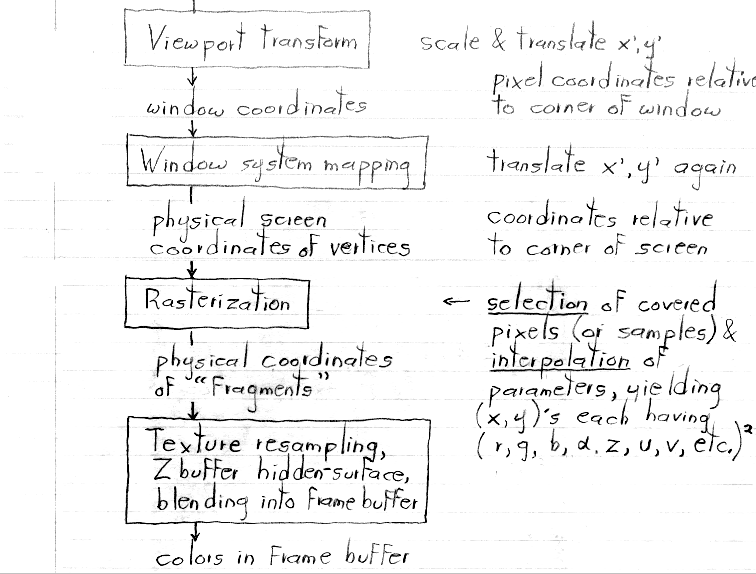 Viewport transform
scale & translate x',y'
pixel coordinates relative
to corner of window
window coordinates
Window system mapping
translate x',y' again
physical screen
coordinates of vertices
coordinates relative
to corner of screen
Rasterization
← selection of covered
pixels (or samples) &
interpolation of
parameters, yielding
(x,y)'s each having
(r, g, b, α, z, u, v, etc.)²
physical coordinates
of "Fragments"
Texture resampling,
Z buffer hidden-surface,
blending into Frame buffer
colors in Frame buffer